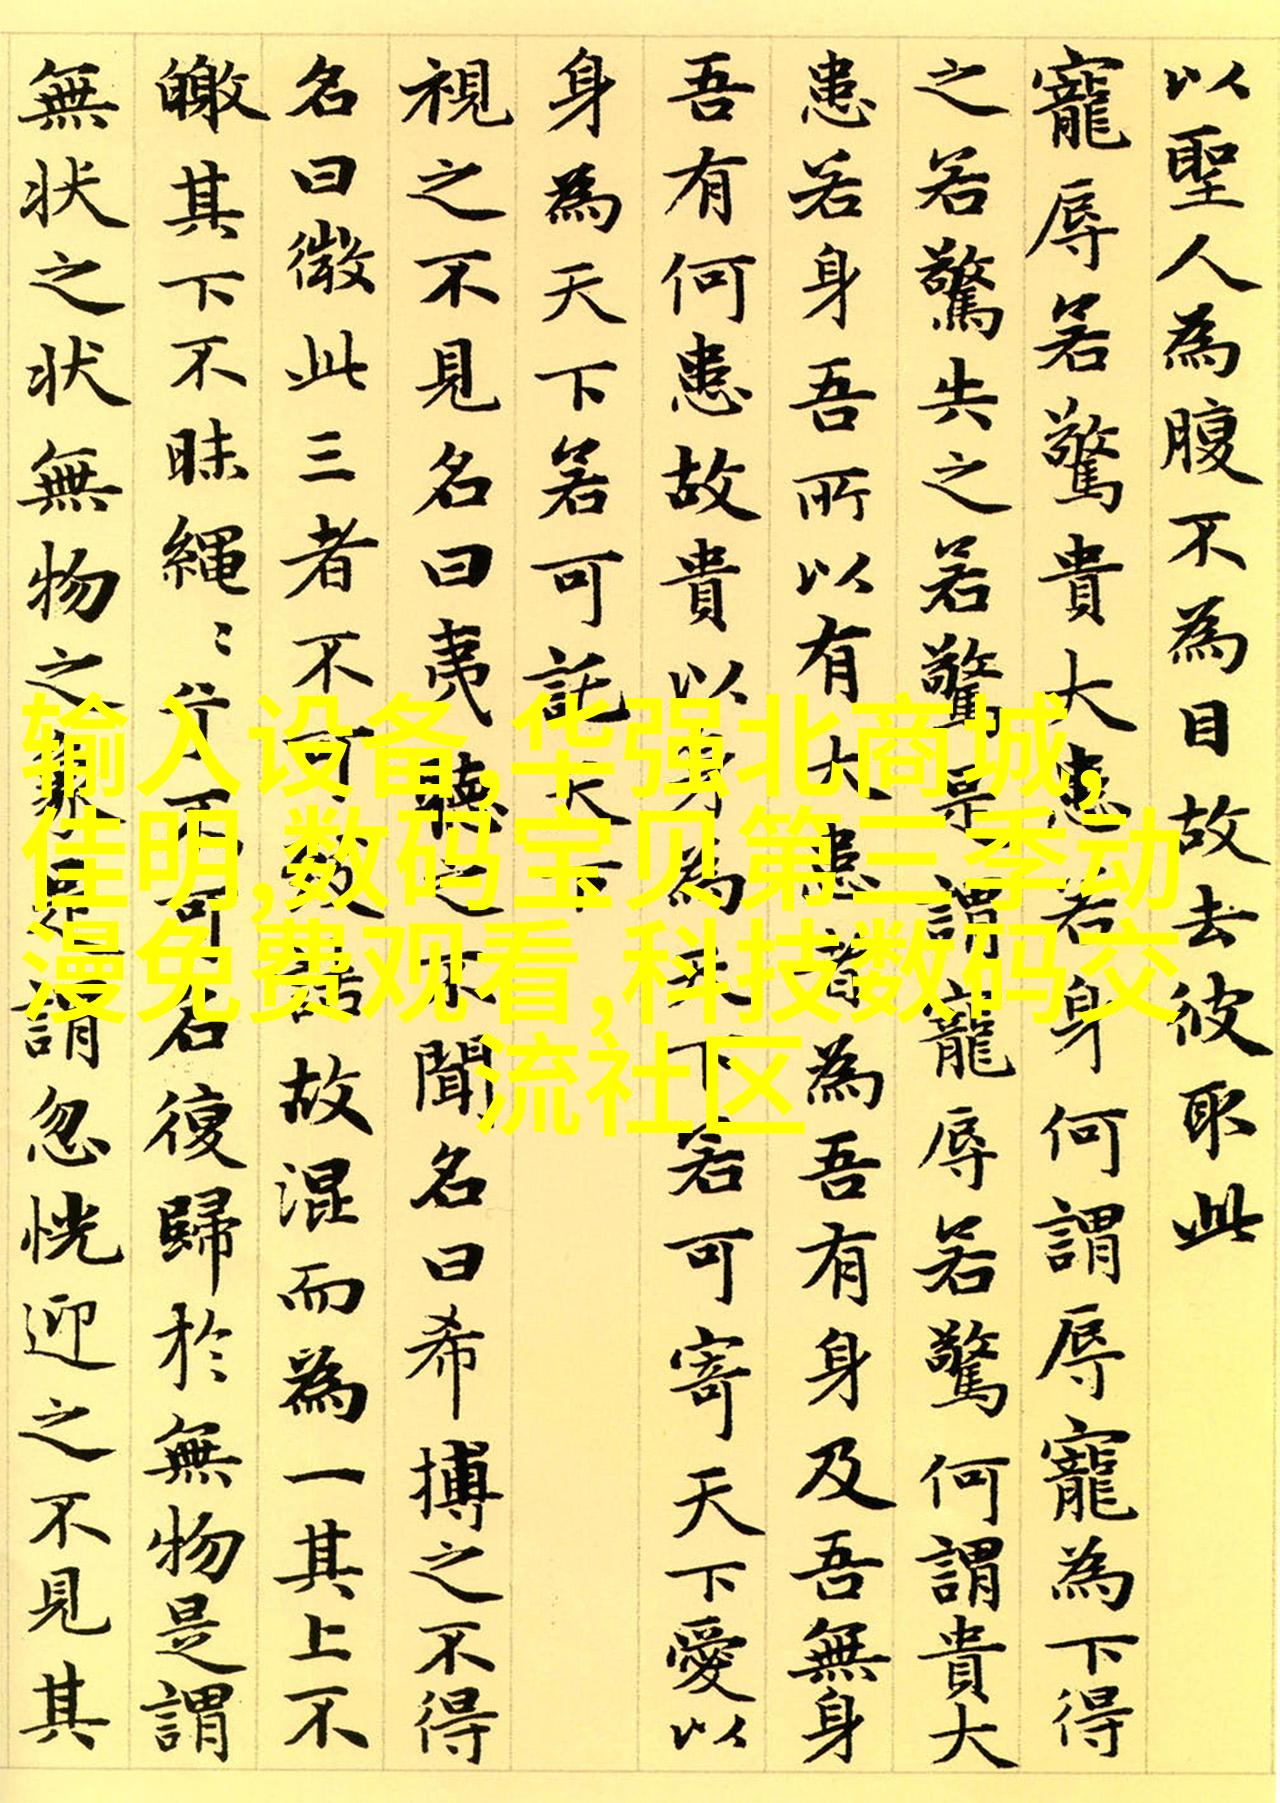 以聖人為腹不為目故去彼取此
寵辱若驚貴大患若身何謂辱寵為下得
之若驚失之若驚是謂寵辱若驚何謂貴大
患若身吾所以有大患者為吾有身及吾無身
吾有何患故貴以身為天下若可寄天下愛以
身為天下若可託天下
視之不見名曰夷聽之不聞名曰希搏之不得
名曰微此三者不可致詰故混而為一其上不
皦其下不昧繩〻兮不可名復歸於無物是謂
無状之状無物之象是謂忽恍迎之不見其
输入设备,华强北商城,
佳明,数码宝贝第三季动
漫免费观看,科技数码交
流社区